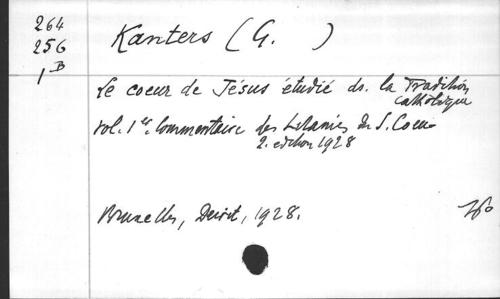 264
256
1 B
Kanters (G. )
Le coeur de Jésus étudié ds. la Tradition
catholique
vol. 1er. Commentaire des Litanies du S. Coeur
2. edition 1928
Bruxelles, 1928.